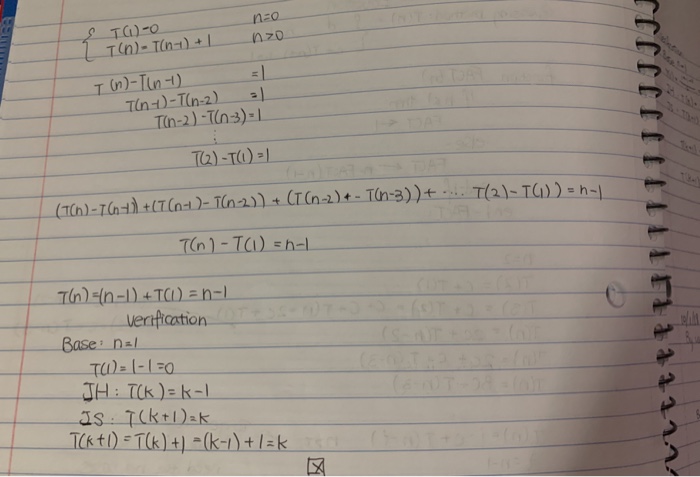 { T(1)=0 n=0
T(n)=T(n-1)+1 n>0
T(n)-T(n-1) =1
T(n-1)-T(n-2) =1
T(n-2)-T(n-3)=1
⋮
T(2)-T(1)=1
(T(n)-T(n-1))+(T(n-1)-T(n-2))+(T(n-2)+-T(n-3))+.... T(2)-T(1))=n-1
T(n)-T(1)=n-1
T(n)=(n-1)+T(1)=n-1
Verification
Base: n=1
T(1)=1-1=0
IH: T(k)=k-1
IS: T(k+1)=k
T(k+1)=T(k)+1=(k-1)+1=k